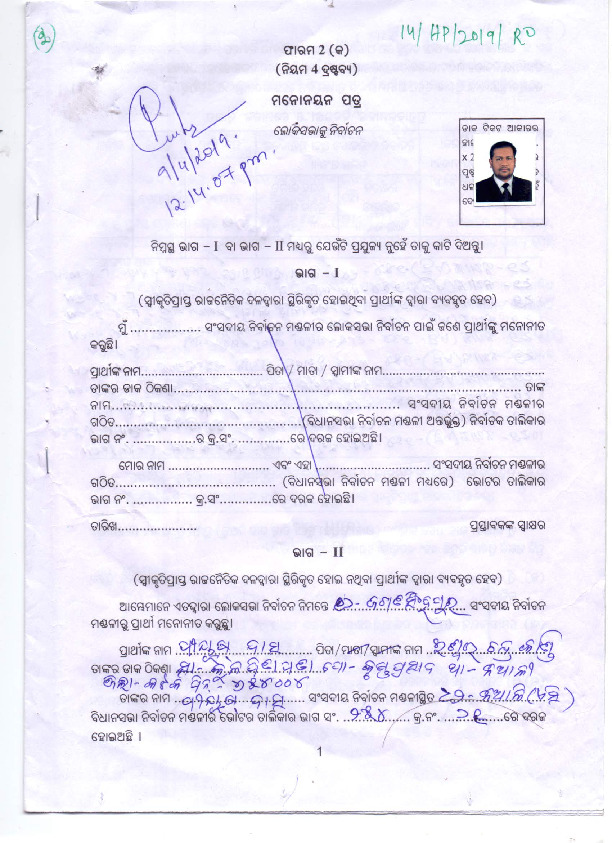 (2)
14/HP/2019/RO
ଫାରମ 2 (କ)
(ନିୟମ 4 ଦ୍ରଷ୍ଟବ୍ୟ)
ମନୋନୟନ ପତ୍ର
ଲୋକସଭାକୁ ନିର୍ବାଚନ
9/4/2019.
12.14.07 pm.
ଡାକ ଟିକଟ ଆକାରର
ନିମ୍ନସ୍ଥ ଭାଗ – I ବା ଭାଗ – II ମଧ୍ୟରୁ ଯେଉଁଟି ପ୍ରଯୁଜ୍ୟ ନୁହେଁ ତାକୁ କାଟି ଦିଅନ୍ତୁ।
ଭାଗ – I
(ସ୍ୱୀକୃତିପ୍ରାପ୍ତ ରାଜନୈତିକ ଦଳଦ୍ୱାରା ସ୍ଥିରିକୃତ ହୋଇଥିବା ପ୍ରାର୍ଥୀଙ୍କ ଦ୍ୱାରା ବ୍ୟବହୃତ ହେବ)
ମୁଁ .................. ସଂସଦୀୟ ନିର୍ବାଚନ ମଣ୍ଡଳୀର ଲୋକସଭା ନିର୍ବାଚନ ପାଇଁ ଜଣେ ପ୍ରାର୍ଥୀଙ୍କୁ ମନୋନୀତ
କରୁଛି।
ପ୍ରାର୍ଥୀଙ୍କ ନାମ.............................. ପିତା / ମାତା / ସ୍ୱାମୀଙ୍କ ନାମ........................................
ତାଙ୍କର ଡାକ ଠିକଣା........................................................................................ ତାଙ୍କ
ନାମ........................................................................ ସଂସଦୀୟ ନିର୍ବାଚନ ମଣ୍ଡଳୀର
ଗଠିତ..............................................(ବିଧାନସଭା ନିର୍ବାଚନ ମଣ୍ଡଳୀ ଅନ୍ତର୍ଭୁକ୍ତ) ନିର୍ବାଚକ ତାଲିକାର
ଭାଗ ନଂ. .................ର କ୍ର.ସଂ. .............ରେ ଦରଜ ହୋଇଅଛି।
ମୋର ନାମ .......................... ଏବଂ ଏହା .............................. ସଂସଦୀୟ ନିର୍ବାଚନ ମଣ୍ଡଳୀର
ଗଠିତ........................................ (ବିଧାନସଭା ନିର୍ବାଚନ ମଣ୍ଡଳୀ ମଧ୍ୟରେ) ଭୋଟର ତାଲିକାର
ଭାଗ ନଂ. ................ କ୍ର.ସଂ..............ରେ ଦରଜ ହୋଇଛି।
ତାରିଖ......................
ପ୍ରସ୍ତାବକଙ୍କ ସ୍ୱାକ୍ଷର
ଭାଗ – II
(ସ୍ୱୀକୃତିପ୍ରାପ୍ତ ରାଜନୈତିକ ଦଳଦ୍ୱାରା ସ୍ଥିରିକୃତ ହୋଇ ନଥିବା ପ୍ରାର୍ଥୀଙ୍କ ଦ୍ୱାରା ବ୍ୟବହୃତ ହେବ)
ଆମ୍ଭେମାନେ ଏତଦ୍ୱାରା ଲୋକସଭା ନିର୍ବାଚନ ନିମନ୍ତେ ଜଗତସିଂହପୁର ସଂସଦୀୟ ନିର୍ବାଚନ
ମଣ୍ଡଳୀରୁ ପ୍ରାର୍ଥୀ ମନୋନୀତ କରୁଛୁ।
ପ୍ରାର୍ଥୀଙ୍କ ନାମ ପୀୟୁଷ ଦାସ ପିତା/ମାତା/ସ୍ୱାମୀଙ୍କ ନାମ
ତାଙ୍କର ଡାକ ଠିକଣା ପୋ- କୃଷ୍ଣପ୍ରସାଦ ଥା- ନିଆଳୀ
ଜିଲା- କଟକ ପିନ୍- ୭୫୪୦୦୪
ତାଙ୍କର ନାମ ପୀୟୁଷ ଦାସ ସଂସଦୀୟ ନିର୍ବାଚନ ମଣ୍ଡଳୀସ୍ଥିତ ନିଆଳି
ବିଧାନସଭା ନିର୍ବାଚନ ମଣ୍ଡଳୀର ଭୋଟର ତାଲିକାର ଭାଗ ସଂ. କ୍ର.ନଂ. ରେ ଦରଜ
ହୋଇଅଛି ।
1